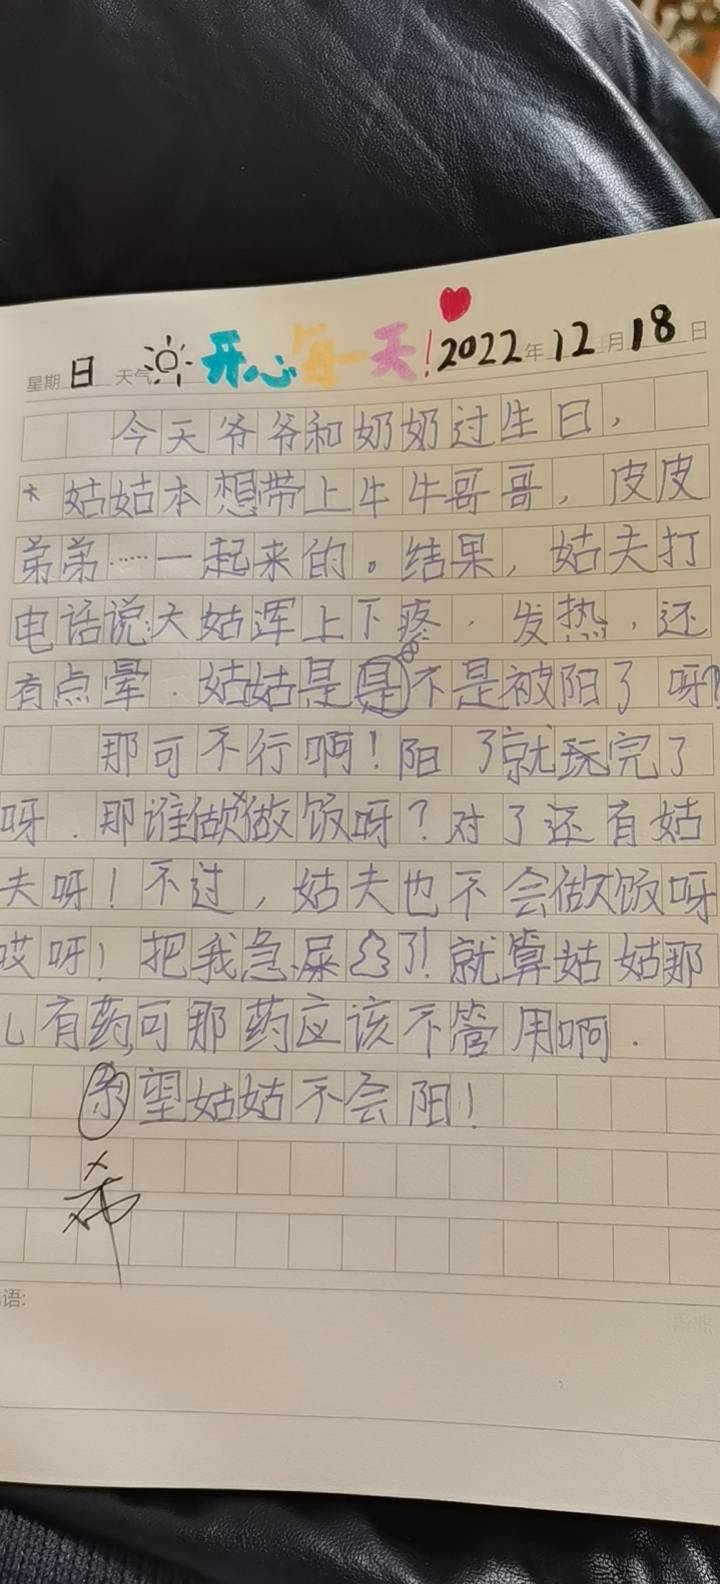 星期 日 天气 开心每一天！2022年12月18日
今天爷爷和奶奶过生日，
大姑姑本想带上牛牛哥哥，皮皮
弟弟……一起来的。结果，姑夫打
电话说：大姑浑上下疼．发热，还
有点晕．姑姑是是不是被阳了呀？
那可不行啊！阳了就玩完了
呀．那谁做做饭呀？对了还有姑
夫呀！不过，姑夫也不会做饭呀
哎呀！把我急尿了！就算姑姑那
儿有药,可那药应该不管用啊．
望姑姑不会阳！
希
语: